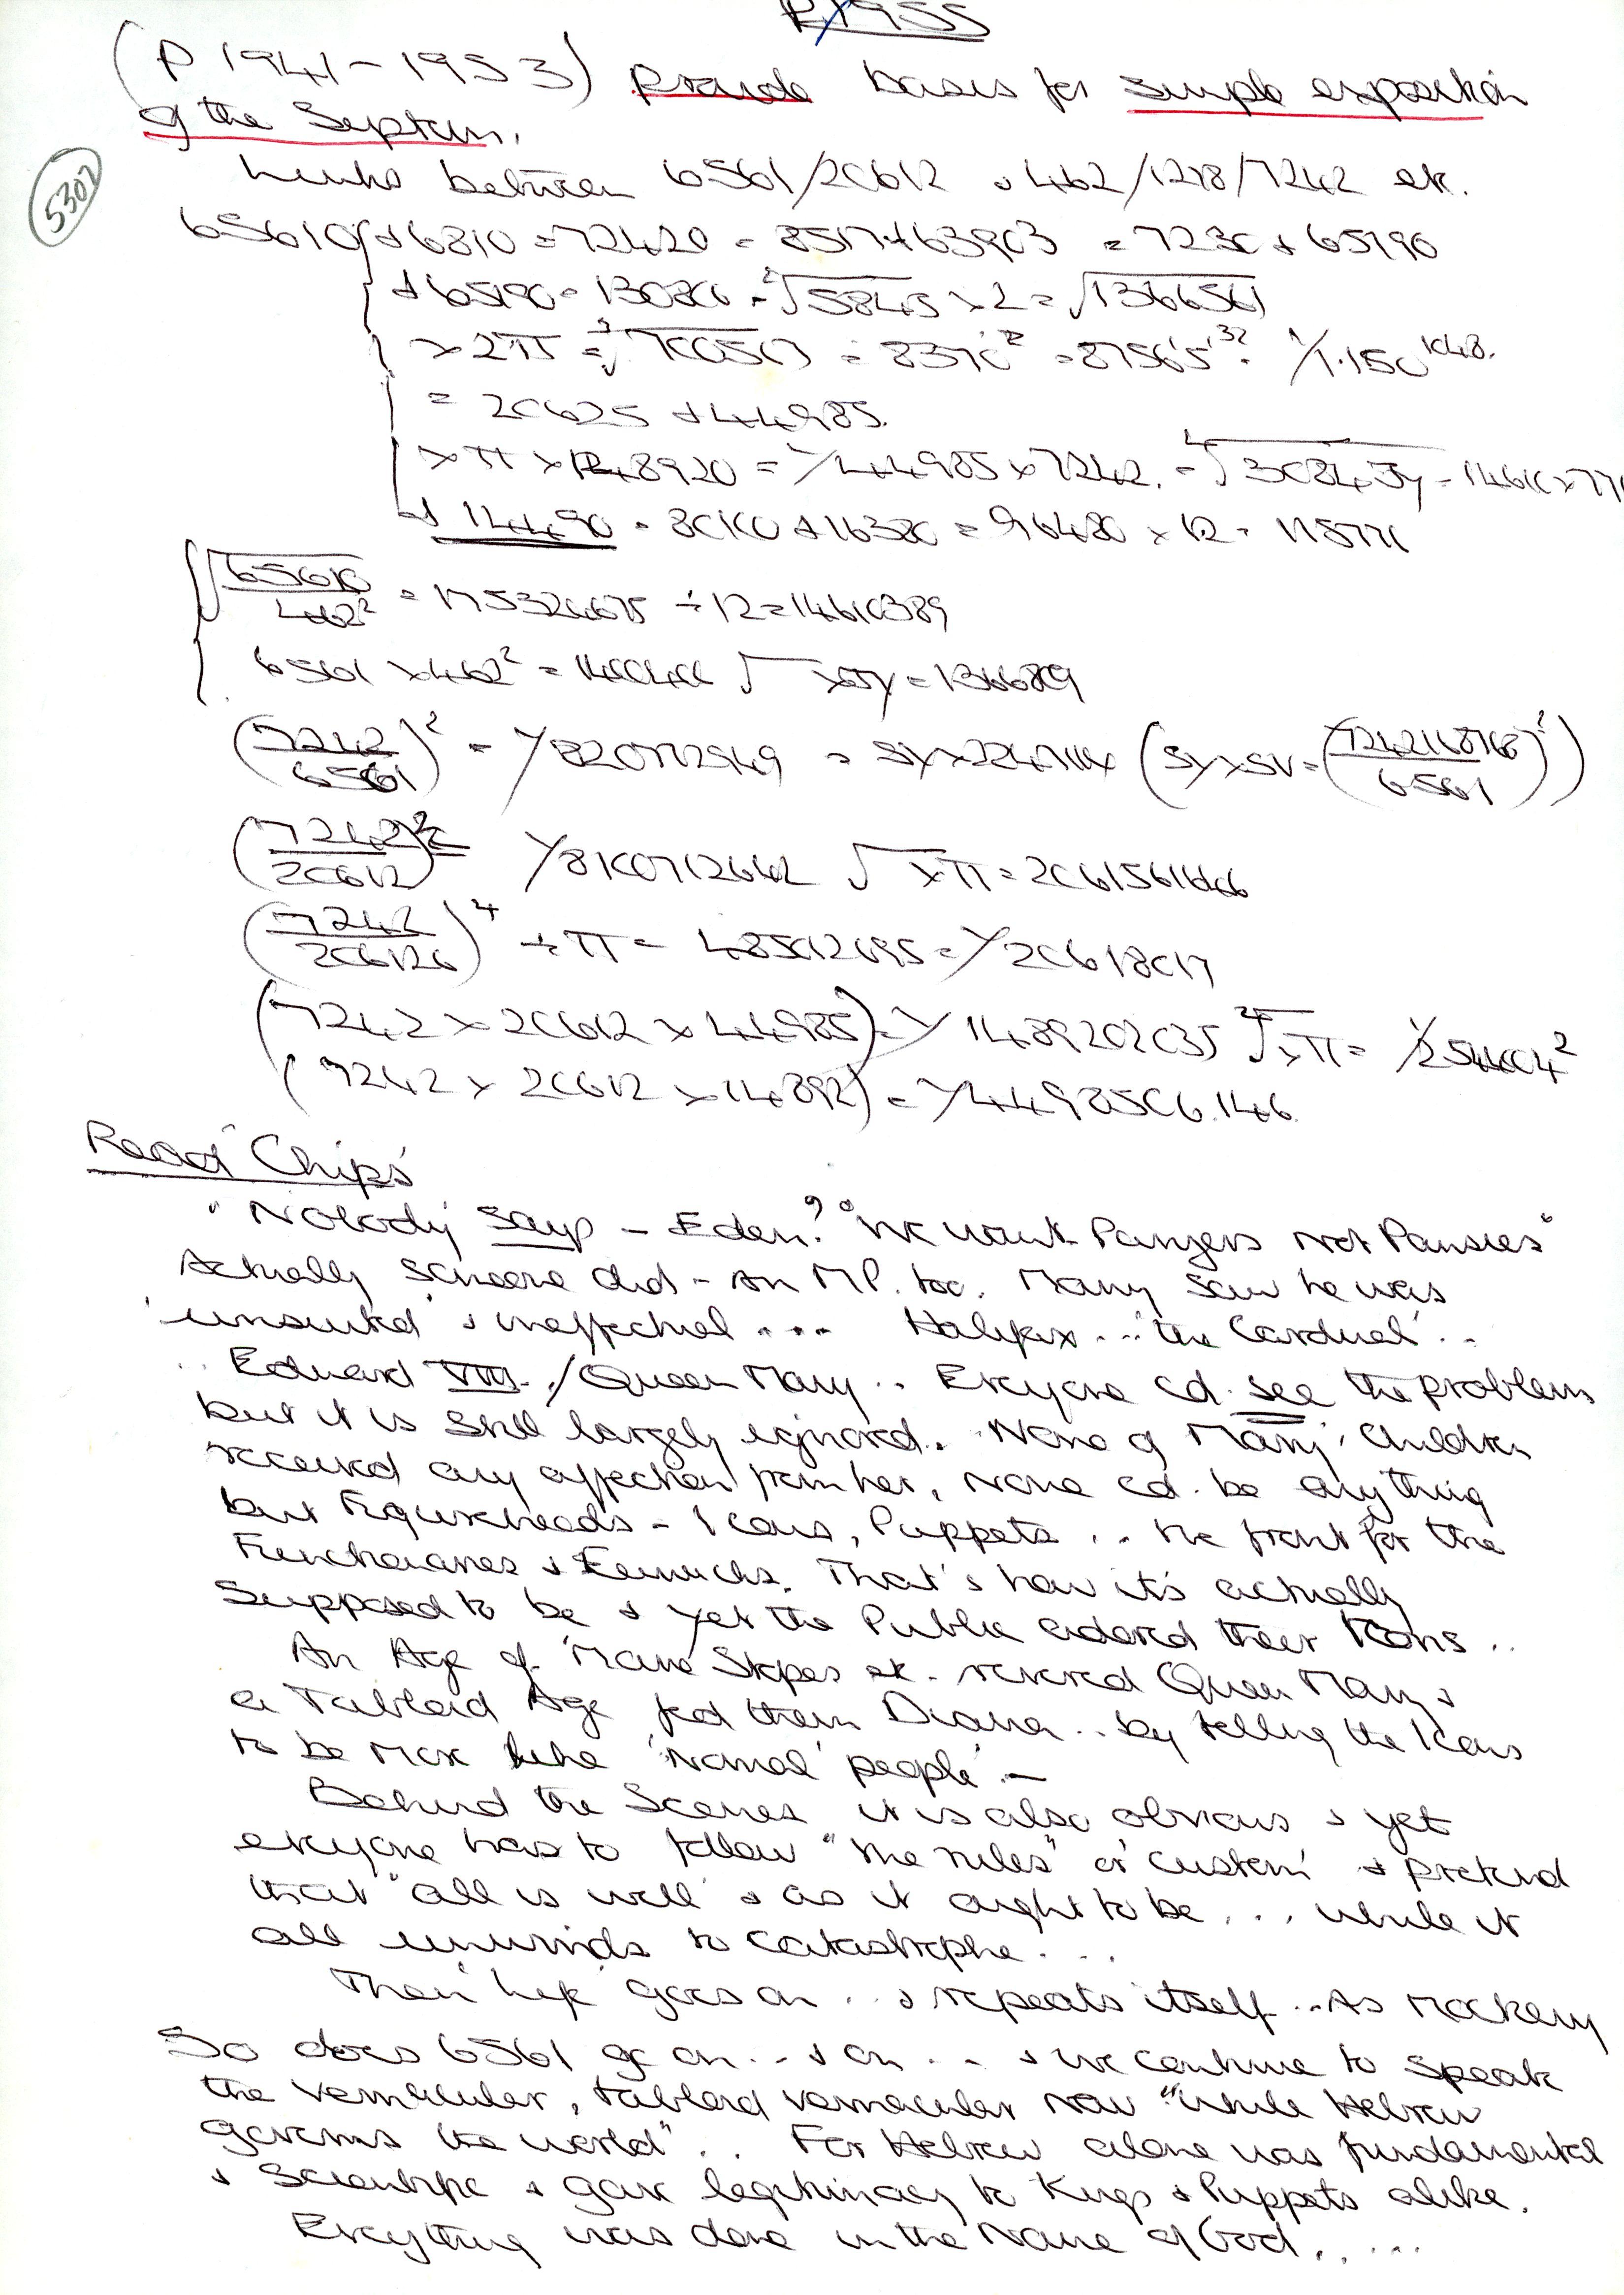 P1955
(P 1941 - 1953) Provide basis for simple exposition
of the Septum.
5302
Links between 6561/20612 & 462/1278/7242 etc.
65610 + 6810 = 72420 = 8517 + 63903 = 7230 + 65190
+ 65190 = 130800 = √58415 × 2 = √1366561
× 2π = = 8370² = 87565³²
= 20625 + 44985.
× π × 148920 = 1/44985 × 7242. =
+ 114490 = 80100 + 16380 = 96480 × 12 =
√65610/462² = 175324675 ÷ 12 = 14610389
6561 × 462² = 1400400 √ = 1366809
(7242/6561)² = 1/820772949 =
(7242/20612)² 1/8100712642 √ × π = 2061561606
(7242/206126)⁴ ÷ π = 485012695 = 1/20618017
(7242 × 20612 × 44985) = 1/1489202035 × π =
(7242 × 20612 × 14892) = 1/44985006.146.
Read 'Chips'
"Nobody says - Eden? "We want Panzers not Pansies"
Actually someone did - an MP. too. Many saw he was
'unsuited' & ineffectual .... Halifax ... 'the Cardinal' ..
.. Edward VIII. / Queen Mary .. Everyone cd. see the problems
but it is still largely ignored. None of Mary's Children
received any affection from her, none cd. be anything
but Figureheads - Icons, Puppets .. the front for the
Functionaries & Eunuchs. That's how it's actually
supposed to be & yet the Public adored their Icons ..
An Age of Marie Stopes etc. revered Queen Mary &
a Tabloid Age fed them Diana .. by telling the Icons
to be more like 'normal people' -
Behind the Scenes it is also obvious & yet
everyone has to follow "the rules" or 'custom' & pretend
that "all is well" & as it ought to be ... while it
all unwinds to catastrophe ...
Then 'life' goes on .. & repeats itself .. As Mockery
So does 6561 go on .. & on .. & we continue to speak
the vernacular, tabloid vernacular now "while Hebrew
governs the world" .. For Hebrew alone was fundamental
& Scientific & gave legitimacy to Kings & Puppets alike.
Everything was done in the Name of God .....